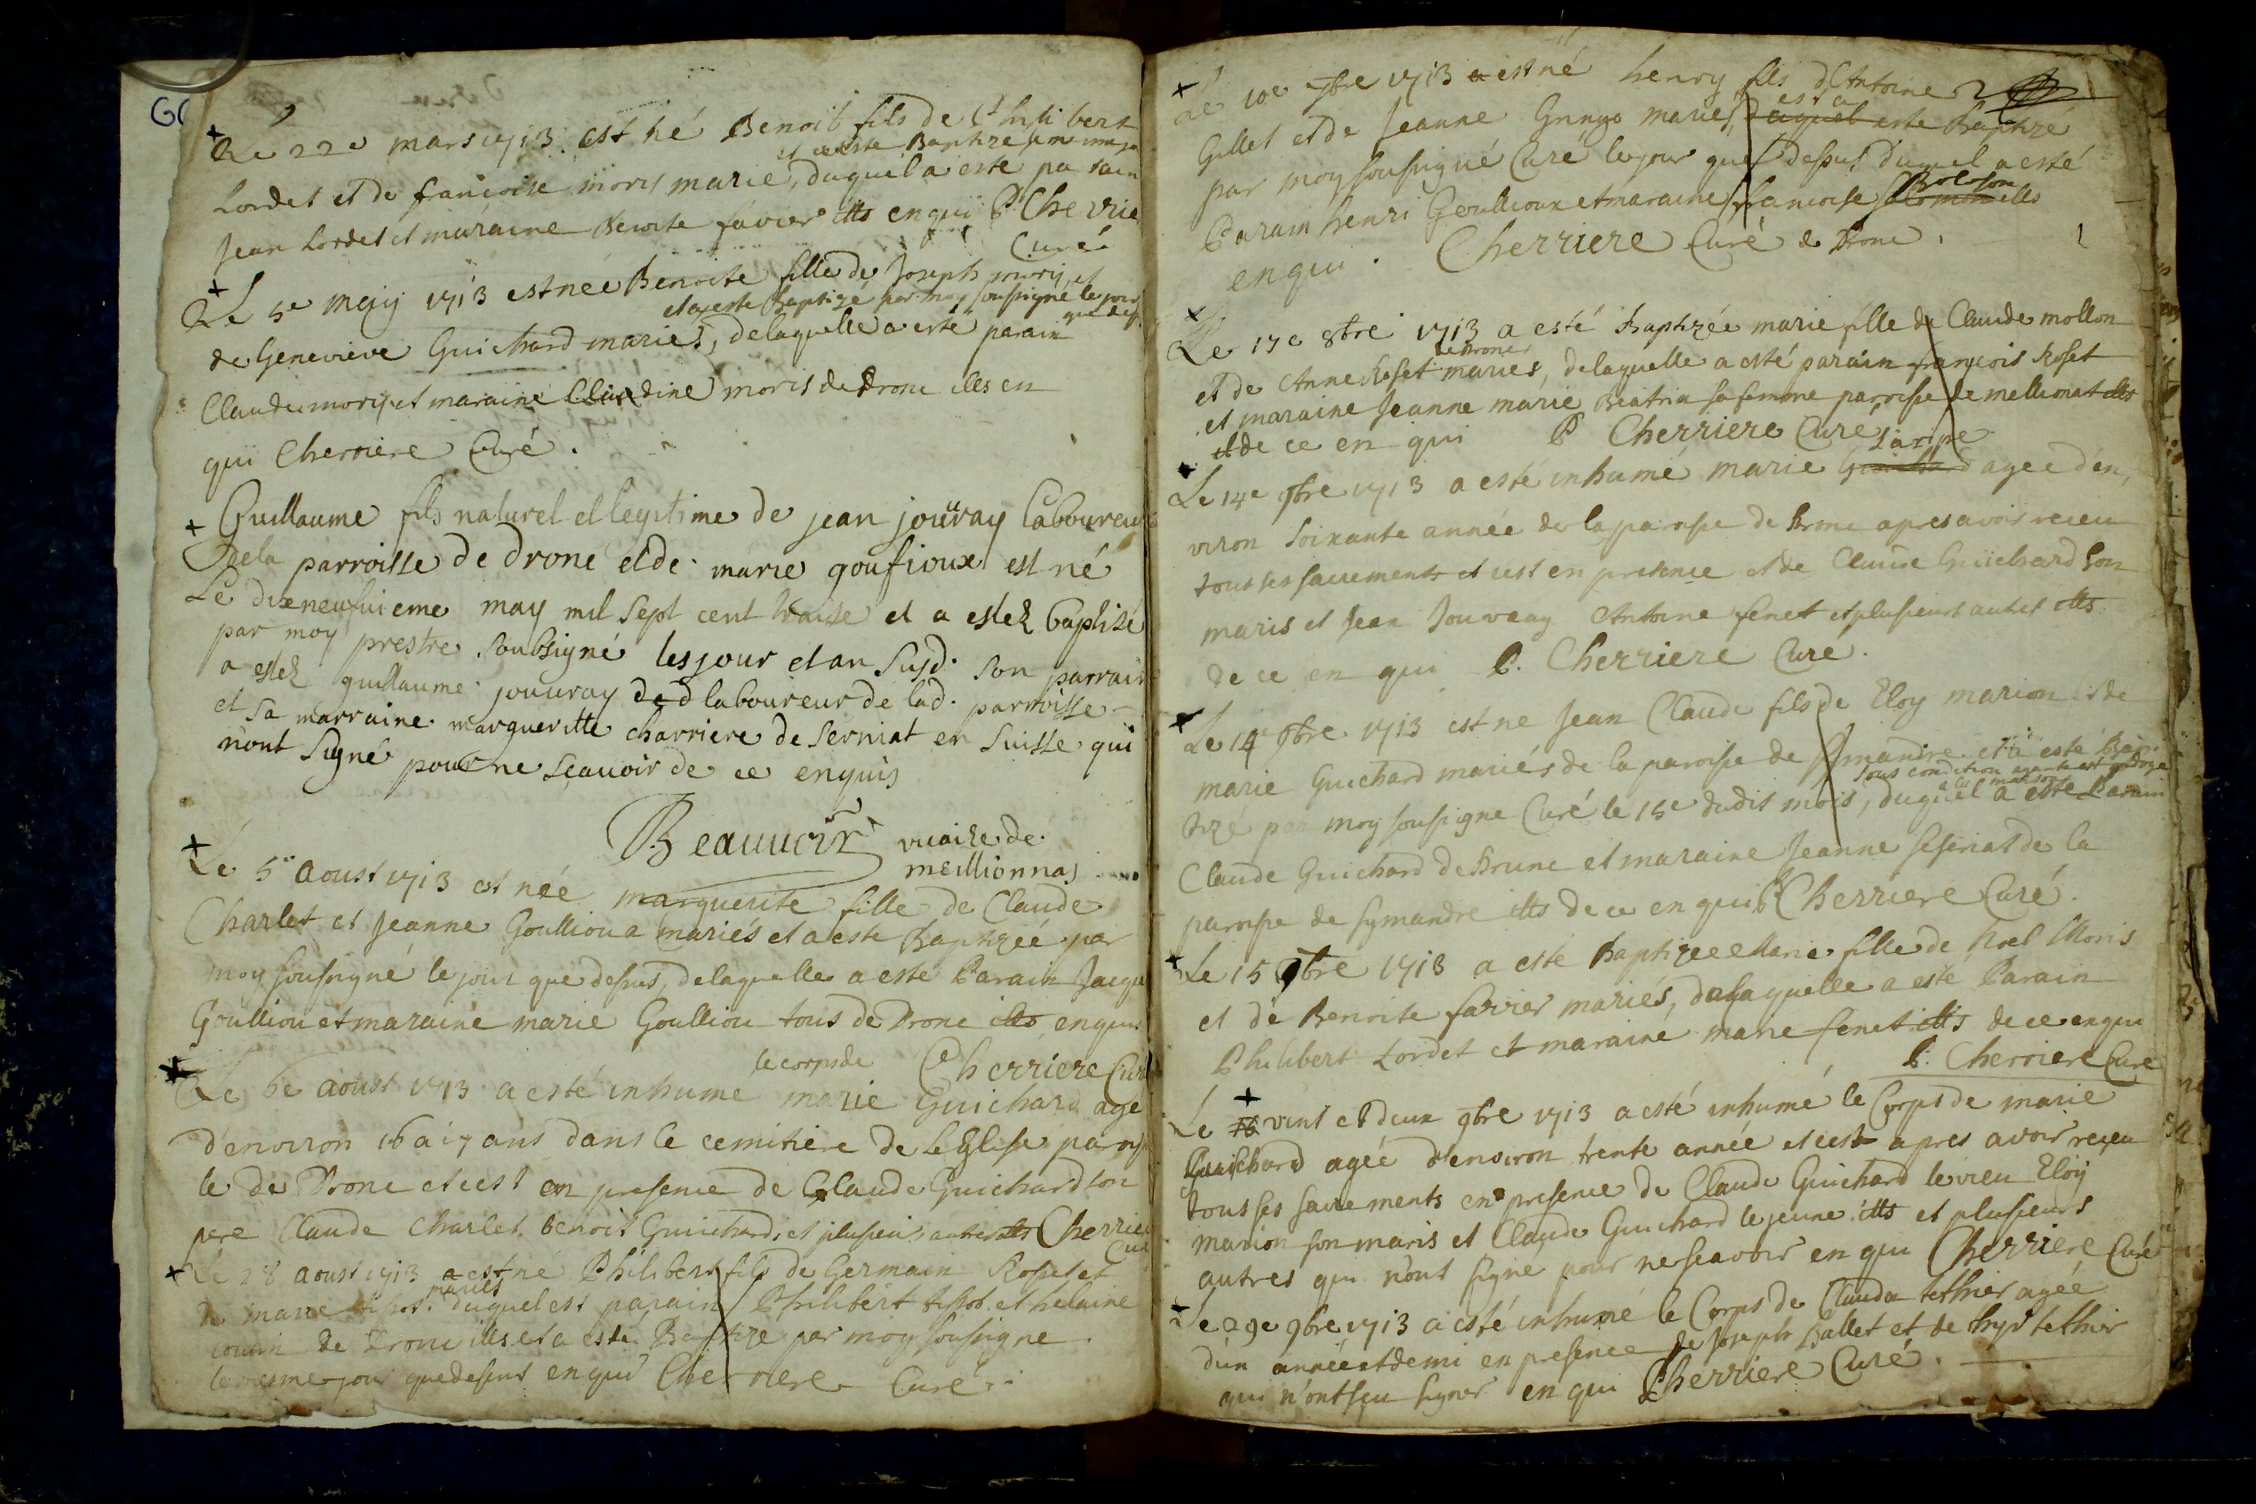 Le 22e mars 1713 est né Benoit fils de Philibert
et a esté Baptizé
Lordet et de françoise moris mariés, duquel a esté parain
Jean Lordet et maraine Benoite favier illts enqui P Cherrie
Curé
Le 5e may 1713 est née Benoite fille de Joseph et
et a esté Baptizé par moy soussigné le jour
que des.
de Genevieve Guichard mariés, delaquelle a esté parain
Claude moris et maraine Claudine moris de Drone illes en
qui Cherriere Curé.
Guillaume fils naturel et legitime de jean jouuray laboureur
dela parroisse de drone et de marie goufioux est né
Le dixneufuieme may mil sept cent traize et a estez baptizé
par moy prestre soubsigné les jour et an susd. son parrain
a estez guillaume jouuray ded laboureur de lad. parroisse
et sa marraine margueritte charriere de serniat en suisse qui
n'ont signé pour ne sçauoir de ce enquis
Beauuoir vicaire de
meillionnas
Le 5 Aoust 1713 est née marguerite fille de Claude
Charlet et Jeanne Goulliou a mariés et a esté Baptizeé par
moy soussigné le jour que dessus, delaquelle a esté Parain Jacque
Goulliou et maraine marie Goulliou tous de Drone illts enquis
Cherriere Curé
le corps de
Le 6e aoust 1713 a esté inhumé marie Guichard agé
d'environ 16 a 17 ans dans le cemitiere de l'Eglise parois
le de Drone et c'est en presence de Claude Guichard son
pere Claude Charlet benoit Guichard et plusieurs autres illts Cherriere
Curé
Le 28 aoust 1713 a est né Philibert fils de Germain Roset et
mariés
de marie tissot duquel est parain Philibert tissot et helaine
cousin de Drone illes et a esté Baptizé par moy soussigne
le mesme jour que dessus enqui Cherriere Curé
Le 10e 7bre 1713 a est né henry fils d'Antoine
est a
Gillet et de Jeanne mariés, duquel esté Baptizé
par moy soussigné Curé le jour que dessus duquel a esté
Parain henri Goullioux et maraine francoise
enqui. Cherriere Curé de Drone.
Le 17e 8bre 1713 a esté Baptizée marie fille de Claude mollon
de Drone
et de Anne Roset mariés, delaquelle a esté parain françois Roset
et maraine Jeanne marie Beatrix sa femme paroisse de mellionat illts
de ce en qui P Cherriere Curé
Le 14e 9bre 1713 a esté inhumé marie agee d'en,
viron soixante année de la paroisse de Drone apres avoir receu
tous ses sacrements et c'est en presence et de Claude Guichard son
maris et Jean Jouvray Antoine fenet et plusieurs autres illts
de ce en qui P. Cherriere Curé.
Le 14e 9bre 1713 est né Jean Claude fils de Eloy marion et de
marie Guichard mariés de la paroisse de simandre et a esté Bap
sous condition ayant esté ondoyé
a la maison
tizé par moy soussigne Curé le 15e dudit mois, duquel a esté Parain
Claude Guichard de Drune et maraine Jeanne seseriat de la
paroisse de symandre illts de ce en qui P Cherriere Curé.
Le 15 9bre 1713 a esté Baptizeé Marie fille de Noel Moris
et de Benoite favier mariés, delaquelle a esté Parain
Philibert Lordet et maraine marie fenet illts de ce enqui
P. Cherriere Curé
Le vint et deux 9bre 1713 a esté inhumé le Corps de marie
Guichard ageé d'environ trente année et cest apres avoir receu
tous ses sacrements en presence de Claude Guichard le vieu Eloy
Marion son maris et Claude Guichard le jeune illts et plusieurs
autres qui n'ont signé pour ne scavoir en qui Cherriere Curé
Le 29e 9bre 1713 a esté inhumé le Corps de Claudu tethier ageé
d'un année et demi en presence de Joseph Ballet et de tethier
qui n'ont sceu signer en qui Cherriere Curé.